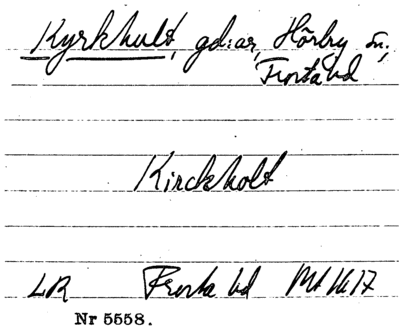 Kyrkhult, gd:ar, Hörby sn,
Frosta hd
Kirckholt
LR Frosta hd Ml 1617
Nr 5558.